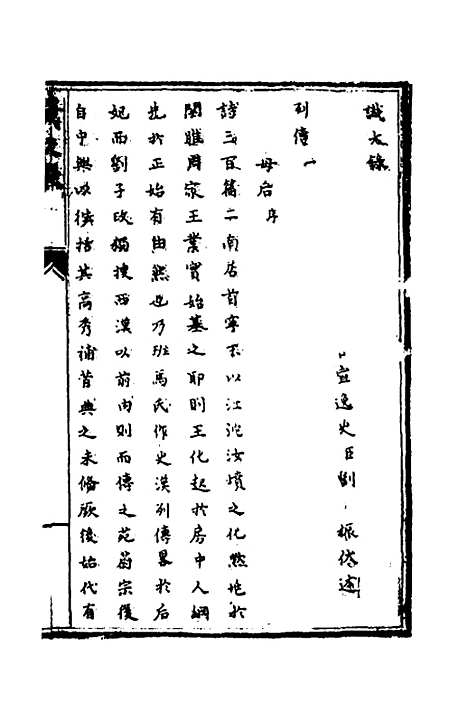 識大錄
宣逸史臣劉振恭述
列傳一
母后序
詩三百篇二南居首寧不以江沱汝墳之化熱地於
關雎周家王業實始基之耶則王化起於房中人綱
先於正始有由然也乃班馬氏作史漢列傳畧於后
妃而劉子政獨搜西漢以前內則而傳之范蔚宗復
自中興以後括其高秀補昔典之未脩厥後始代有